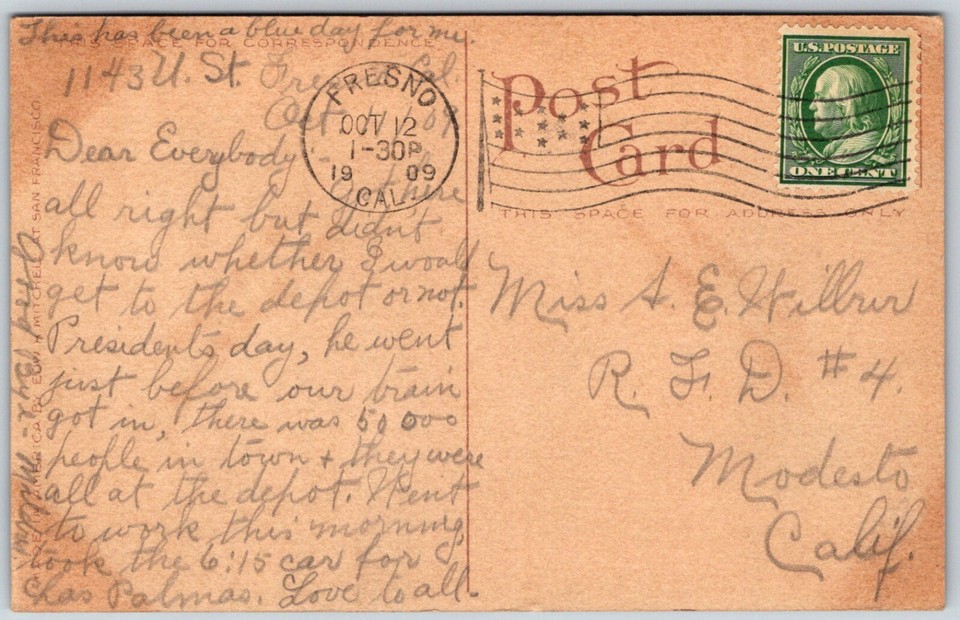 This has been a blue day for me.
THIS SPACE FOR CORRESPONDENCE
1143 U. St. Fresno Cal.
Oct 09
Dear Everybody:-
here
all right but didnt
know whether I would
get to the depot or not.
Presidents day, he went
just before our train
got in, there was 50000
people in town + they were
all at the depot. Went
to work this morning,
took the 6:15 car for
Las Palmas. Love to all
FRESNO
OCT 12
1-30P
19 09
CAL.
Post
Card
THIS SPACE FOR ADDRESS ONLY
U.S. POSTAGE
ONE CENT
Miss A. E. Wilbur
R. F. D. #4.
Modesto
Calif.
MITCHELL, SAN FRANCISCO